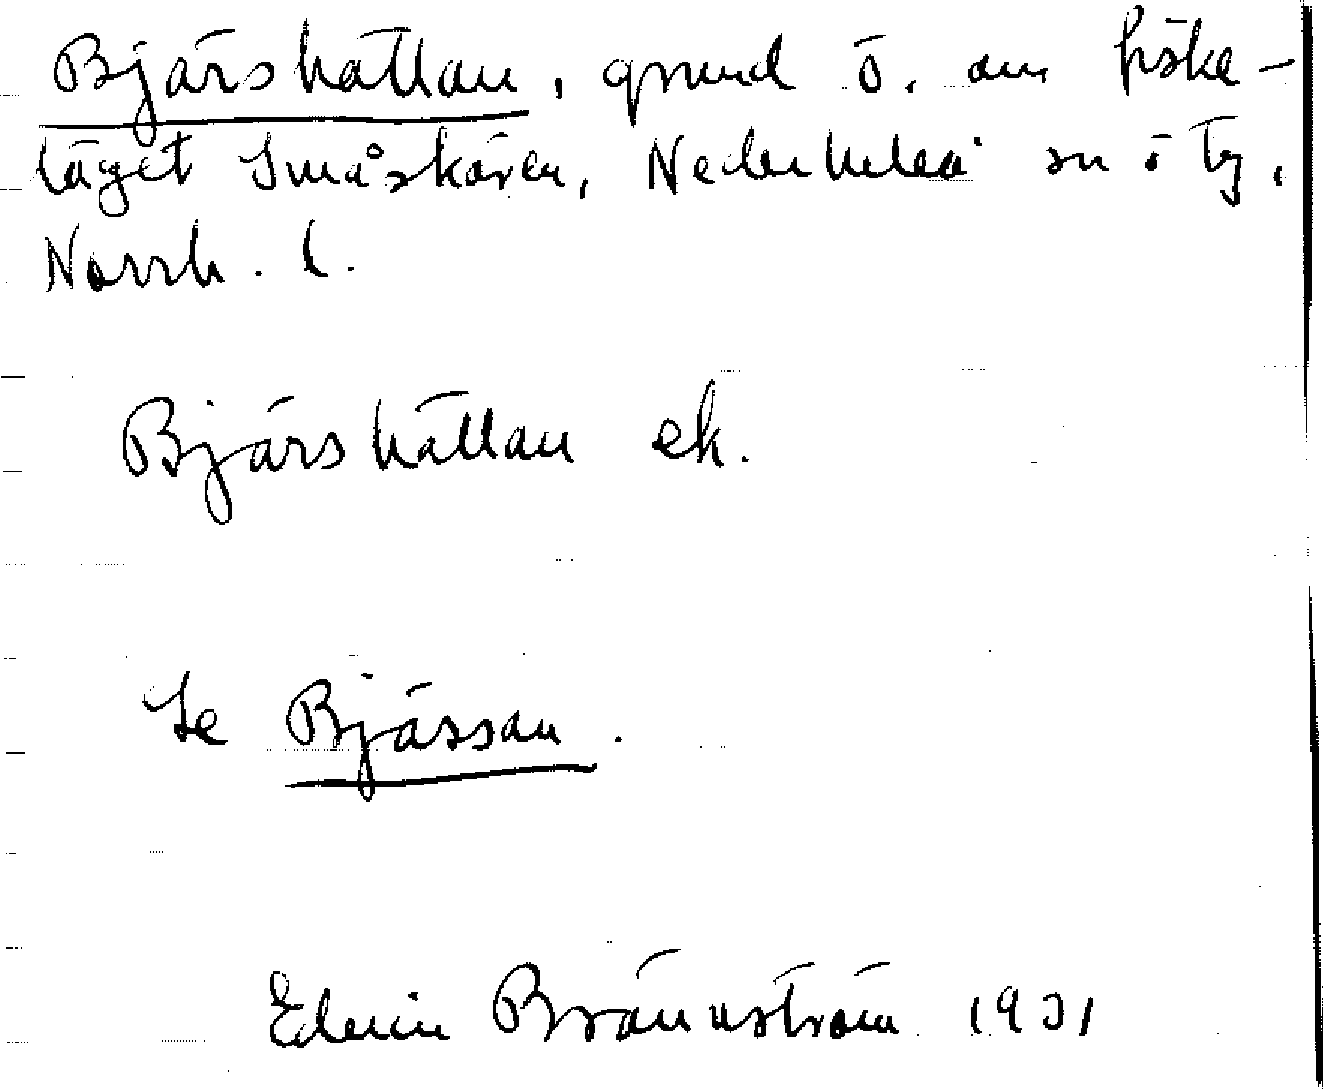 Bjärshällan, grund ö. om fiske-
läget Småskären, Nederluleå sn o tg,
Norrb. l.
Bjärshällan ek.
Se Bjässan.
Edvin Brännström 1931